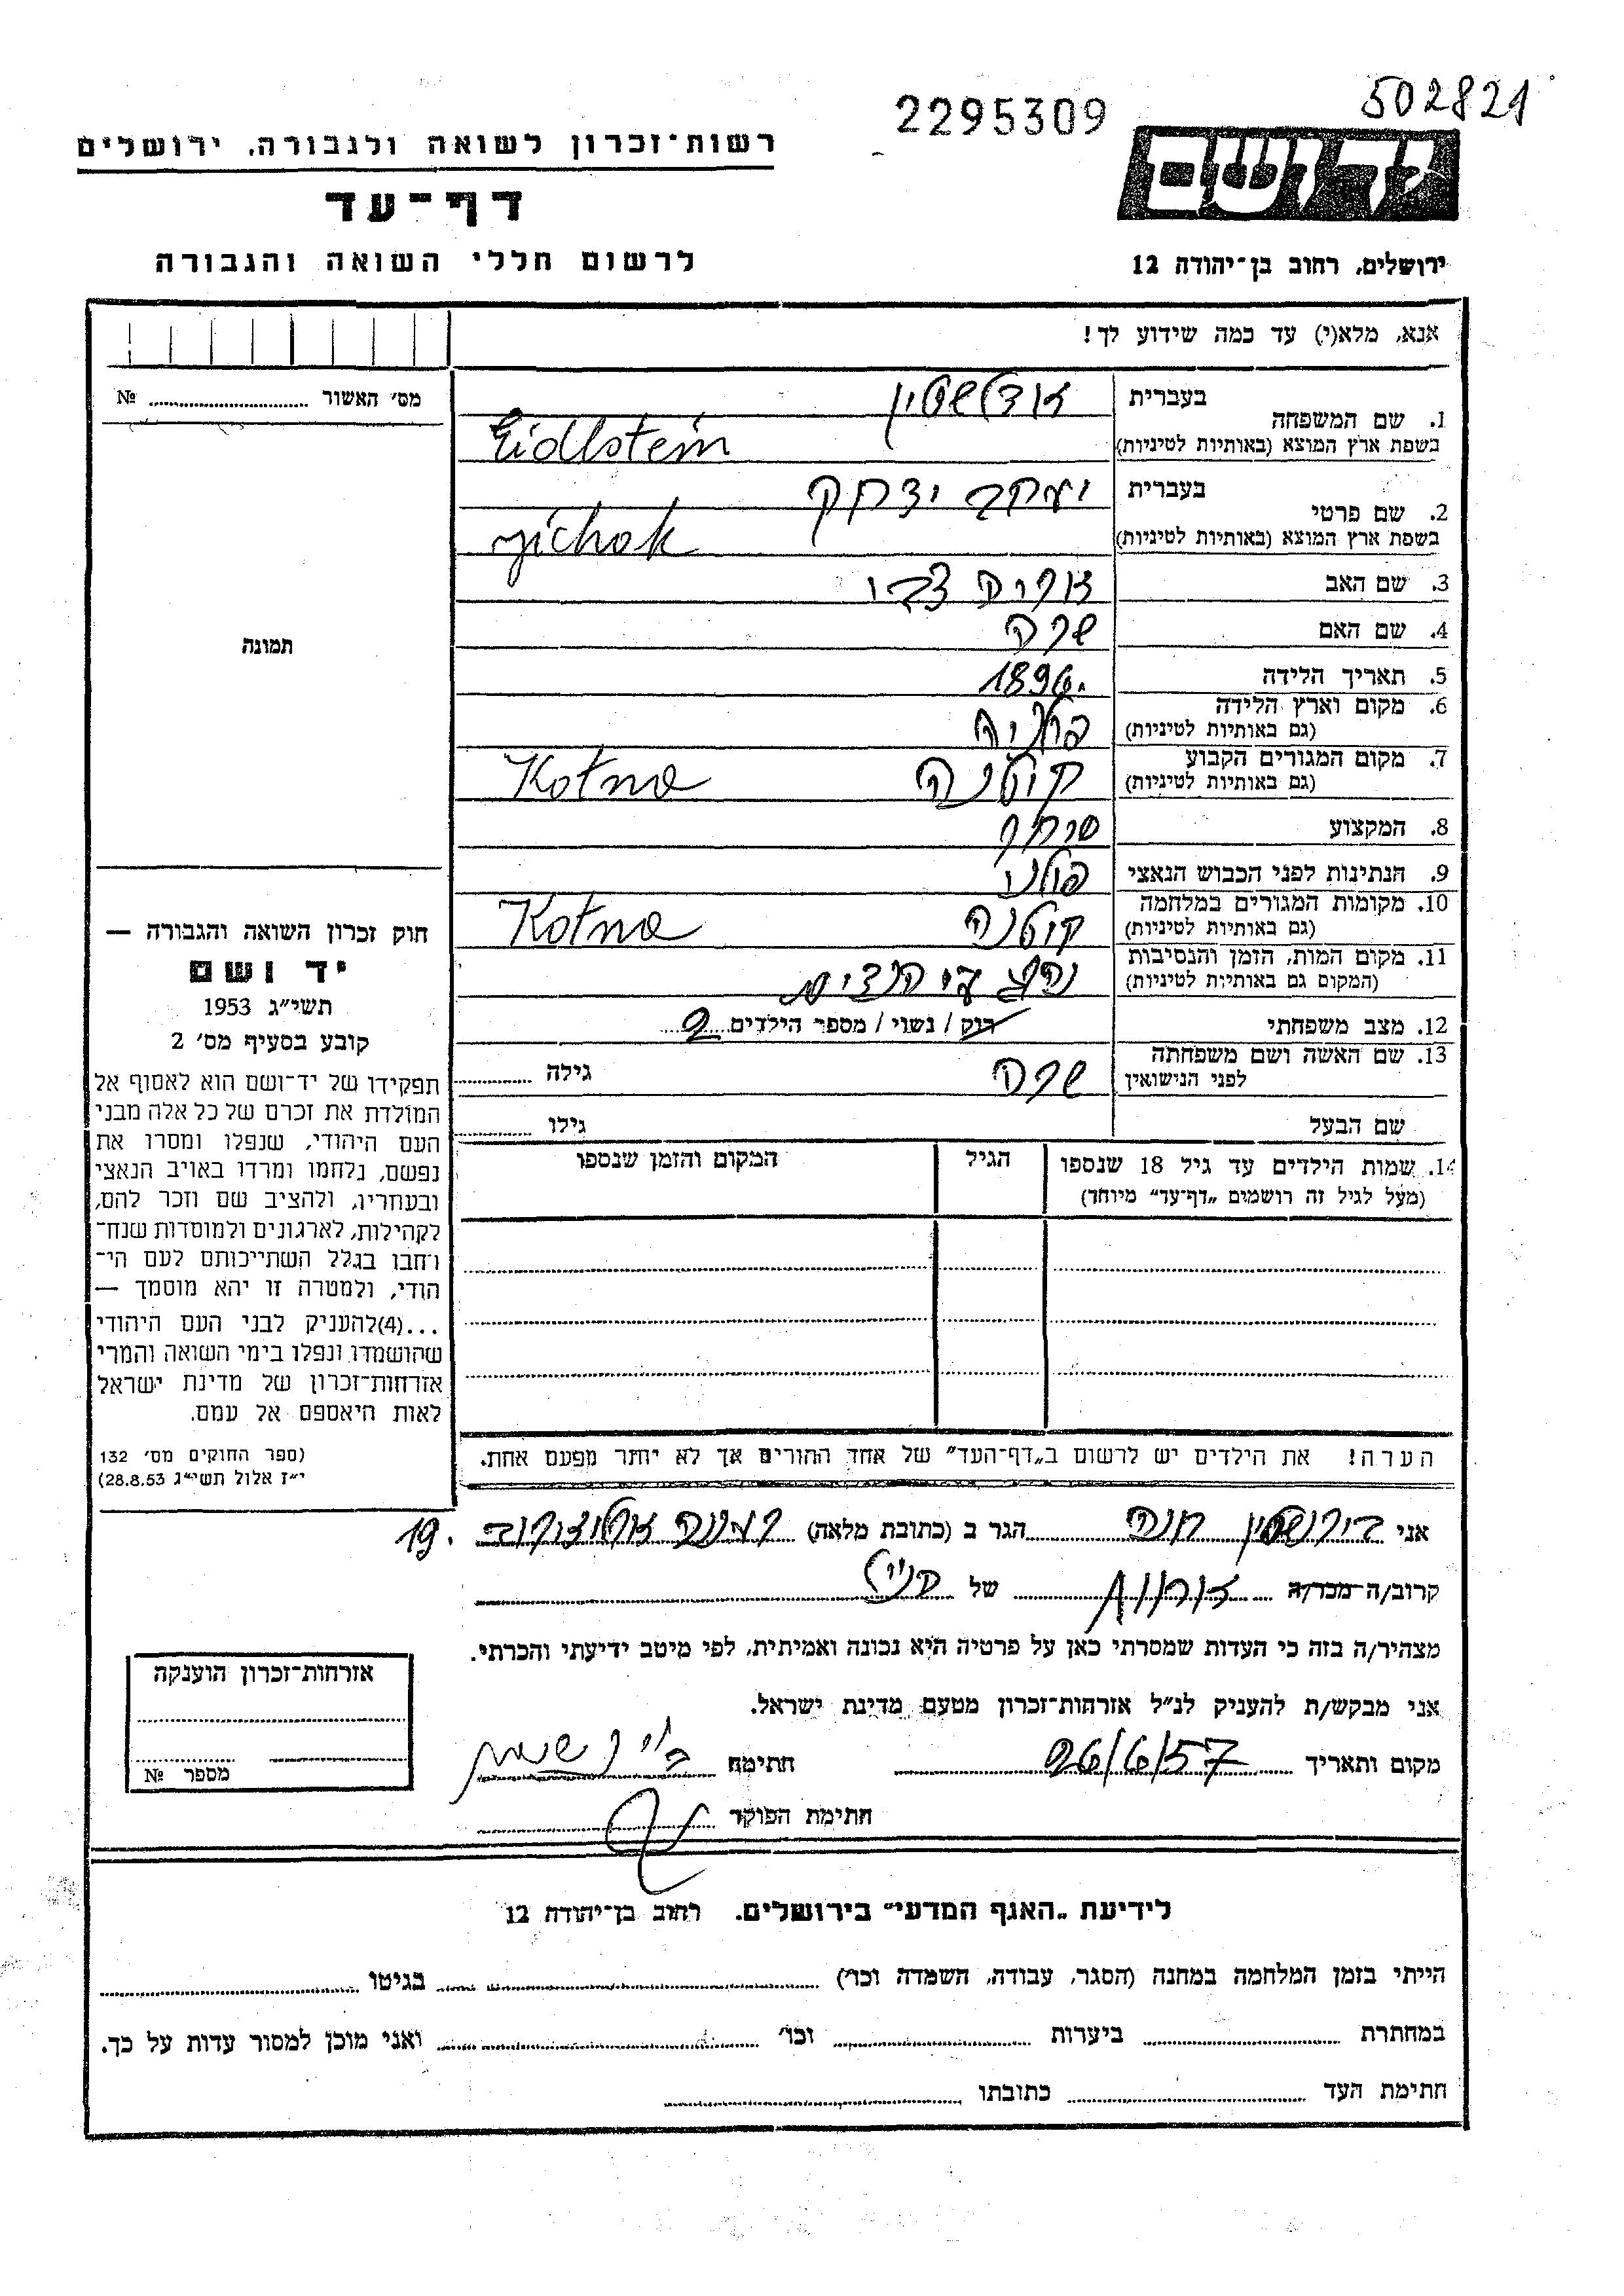 502821
2295309
רשות־זכרון לשואה ולגבורה, ירושלים
ידושם
דף־עד
לרשום חללי השואה והגבורה
ירושלים, רחוב בן־יהודה 12
אנא, מלא(י) עד כמה שידוע לך!
מס׳ האשור № 
1. שם המשפחה
בעברית אידלשטין
בשפת ארץ המוצא (באותיות לטיניות) Eidlstein
2. שם פרטי
בעברית יעקב יצחק
בשפת ארץ המוצא (באותיות לטיניות) jichok
3. שם האב צבי
4. שם האם שרה
5. תאריך הלידה 1896.
6. מקום וארץ הלידה פולניה
(גם באותיות לטיניות)
7. מקום המגורים הקבוע קוטנה Kotna
(גם באותיות לטיניות)
8. המקצוע סוחר
9. הנתינות לפני הכבוש הנאצי פולני
10. מקומות המגורים במלחמה קוטנה Kotna
(גם באותיות לטיניות)
11. מקום המות, הזמן והנסיבות נהרג ע״י הנצים
(המקום גם באותיות לטיניות)
12. מצב משפחתי רוק / נשוי / מספר הילדים 2
13. שם האשה ושם משפחתה שרה גילה
לפני הנישואין
שם הבעל גילו
14. שמות הילדים עד גיל 18 שנספו הגיל המקום והזמן שנספו
(מעל לגיל זה רושמים „דף־עד״ מיוחד)
הערה! את הילדים יש לרשום ב„דף־העד״ של אחד ההורים אך לא יותר מפעם אחת.
תמונה
חוק זכרון השואה והגבורה —
יד ושם
תשי״ג 1953
קובע בסעיף מס׳ 2
תפקידו של יד־ושם הוא לאסוף אל
המולדת את זכרם של כל אלה מבני
העם היהודי, שנפלו ומסרו את
נפשם, נלחמו ומרדו באויב הנאצי
ובעוזריו, ולהציב שם וזכר להם,
לקהילות, לארגונים ולמוסדות שנח־
רחבו בגלל השתייכותם לעם הי־
הודי, ולמטרה זו יהא מוסמך —
...(4)להעניק לבני העם היהודי
שהושמדו ונפלו בימי השואה והמרי
אזרחות־זכרון של מדינת ישראל
לאות היאספם אל עמם.
(ספר החוקים מס׳ 132
י״ז אלול תשי״ג 28.8.53)
אני חנה הגר ב (כתובת מלאה) רעננה 19.
קרוב/ה מכר/ה אחות של הנ״ל
מצהיר/ה בזה כי העדות שמסרתי כאן על פרטיה היא נכונה ואמיתית, לפי מיטב ידיעתי והכרתי.
אני מבקש/ת להעניק לנ״ל אזרחות־זכרון מטעם מדינת ישראל.
מקום ותאריך 26/6/57 חתימה
חתימת הפוקד
אזרחות־זכרון הוענקה
מספר №
לידיעת „האגף המדעי״ בירושלים. רחוב בן־יהודה 12
הייתי בזמן המלחמה במחנה (הסגר, עבודה, השמדה וכו׳) בגיטו
במחתרת ביערות וכו׳ ואני מוכן למסור עדות על כך.
חתימת העד כתובתו